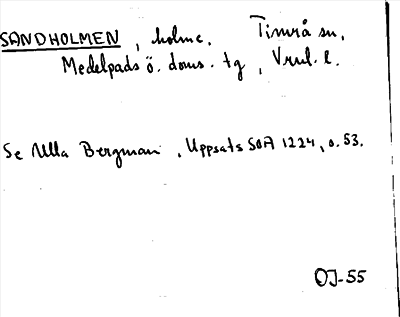 SANDHOLMEN, holme. Timrå sn,
Medelpads ö. doms. tg, Vrnl. l.
Se Ulla Bergman, Uppsats SOA 1224, s. 53.
OJ-55